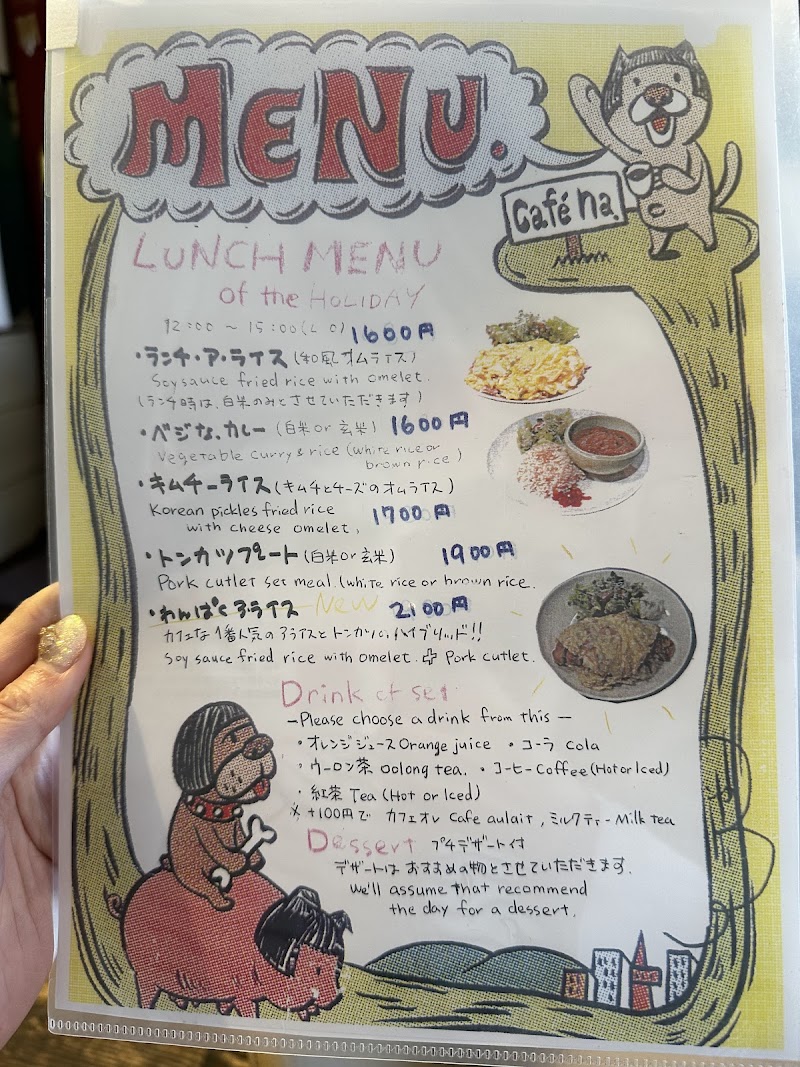 MENU.
Café na.
LUNCH MENU
of the HOLIDAY
12:00 ～ 15:00 (L O) 1600円
・ランチ・ア・ライス (和風オムライス)
Soy sauce fried rice with omelet.
(ランチ時は、白米のみとさせていただきます)
・ベジな、カレー (白米 or 玄米) 1600円
Vegetable curry & rice (white rice or
brown rice)
・キムチーライス (キムチとチーズのオムライス)
Korean pickles fried rice
with cheese omelet, 1700円
・トンカツプレート (白米 or 玄米) 1900円
Pork cutlet set meal. (white rice or brown rice.
・わんぱくアライス NEW 2,100円
カフェな1番人気のアライスとトンカツの、ハイブリッド!!
Soy sauce fried rice with omelet. + Pork cutlet.
Drink of set
—Please choose a drink from this —
・オレンジジュース Orange juice ・コーラ Cola
・ウーロン茶 oolong tea. ・コーヒー Coffee (Hot or Iced)
・紅茶 Tea (Hot or Iced)
※ +100円で カフェオレ Cafe aulait, ミルクティー Milk tea
Dessert プチデザート付
デザートは おすすめの物とさせていただきます.
We'll assume that recommend
the day for a dessert.